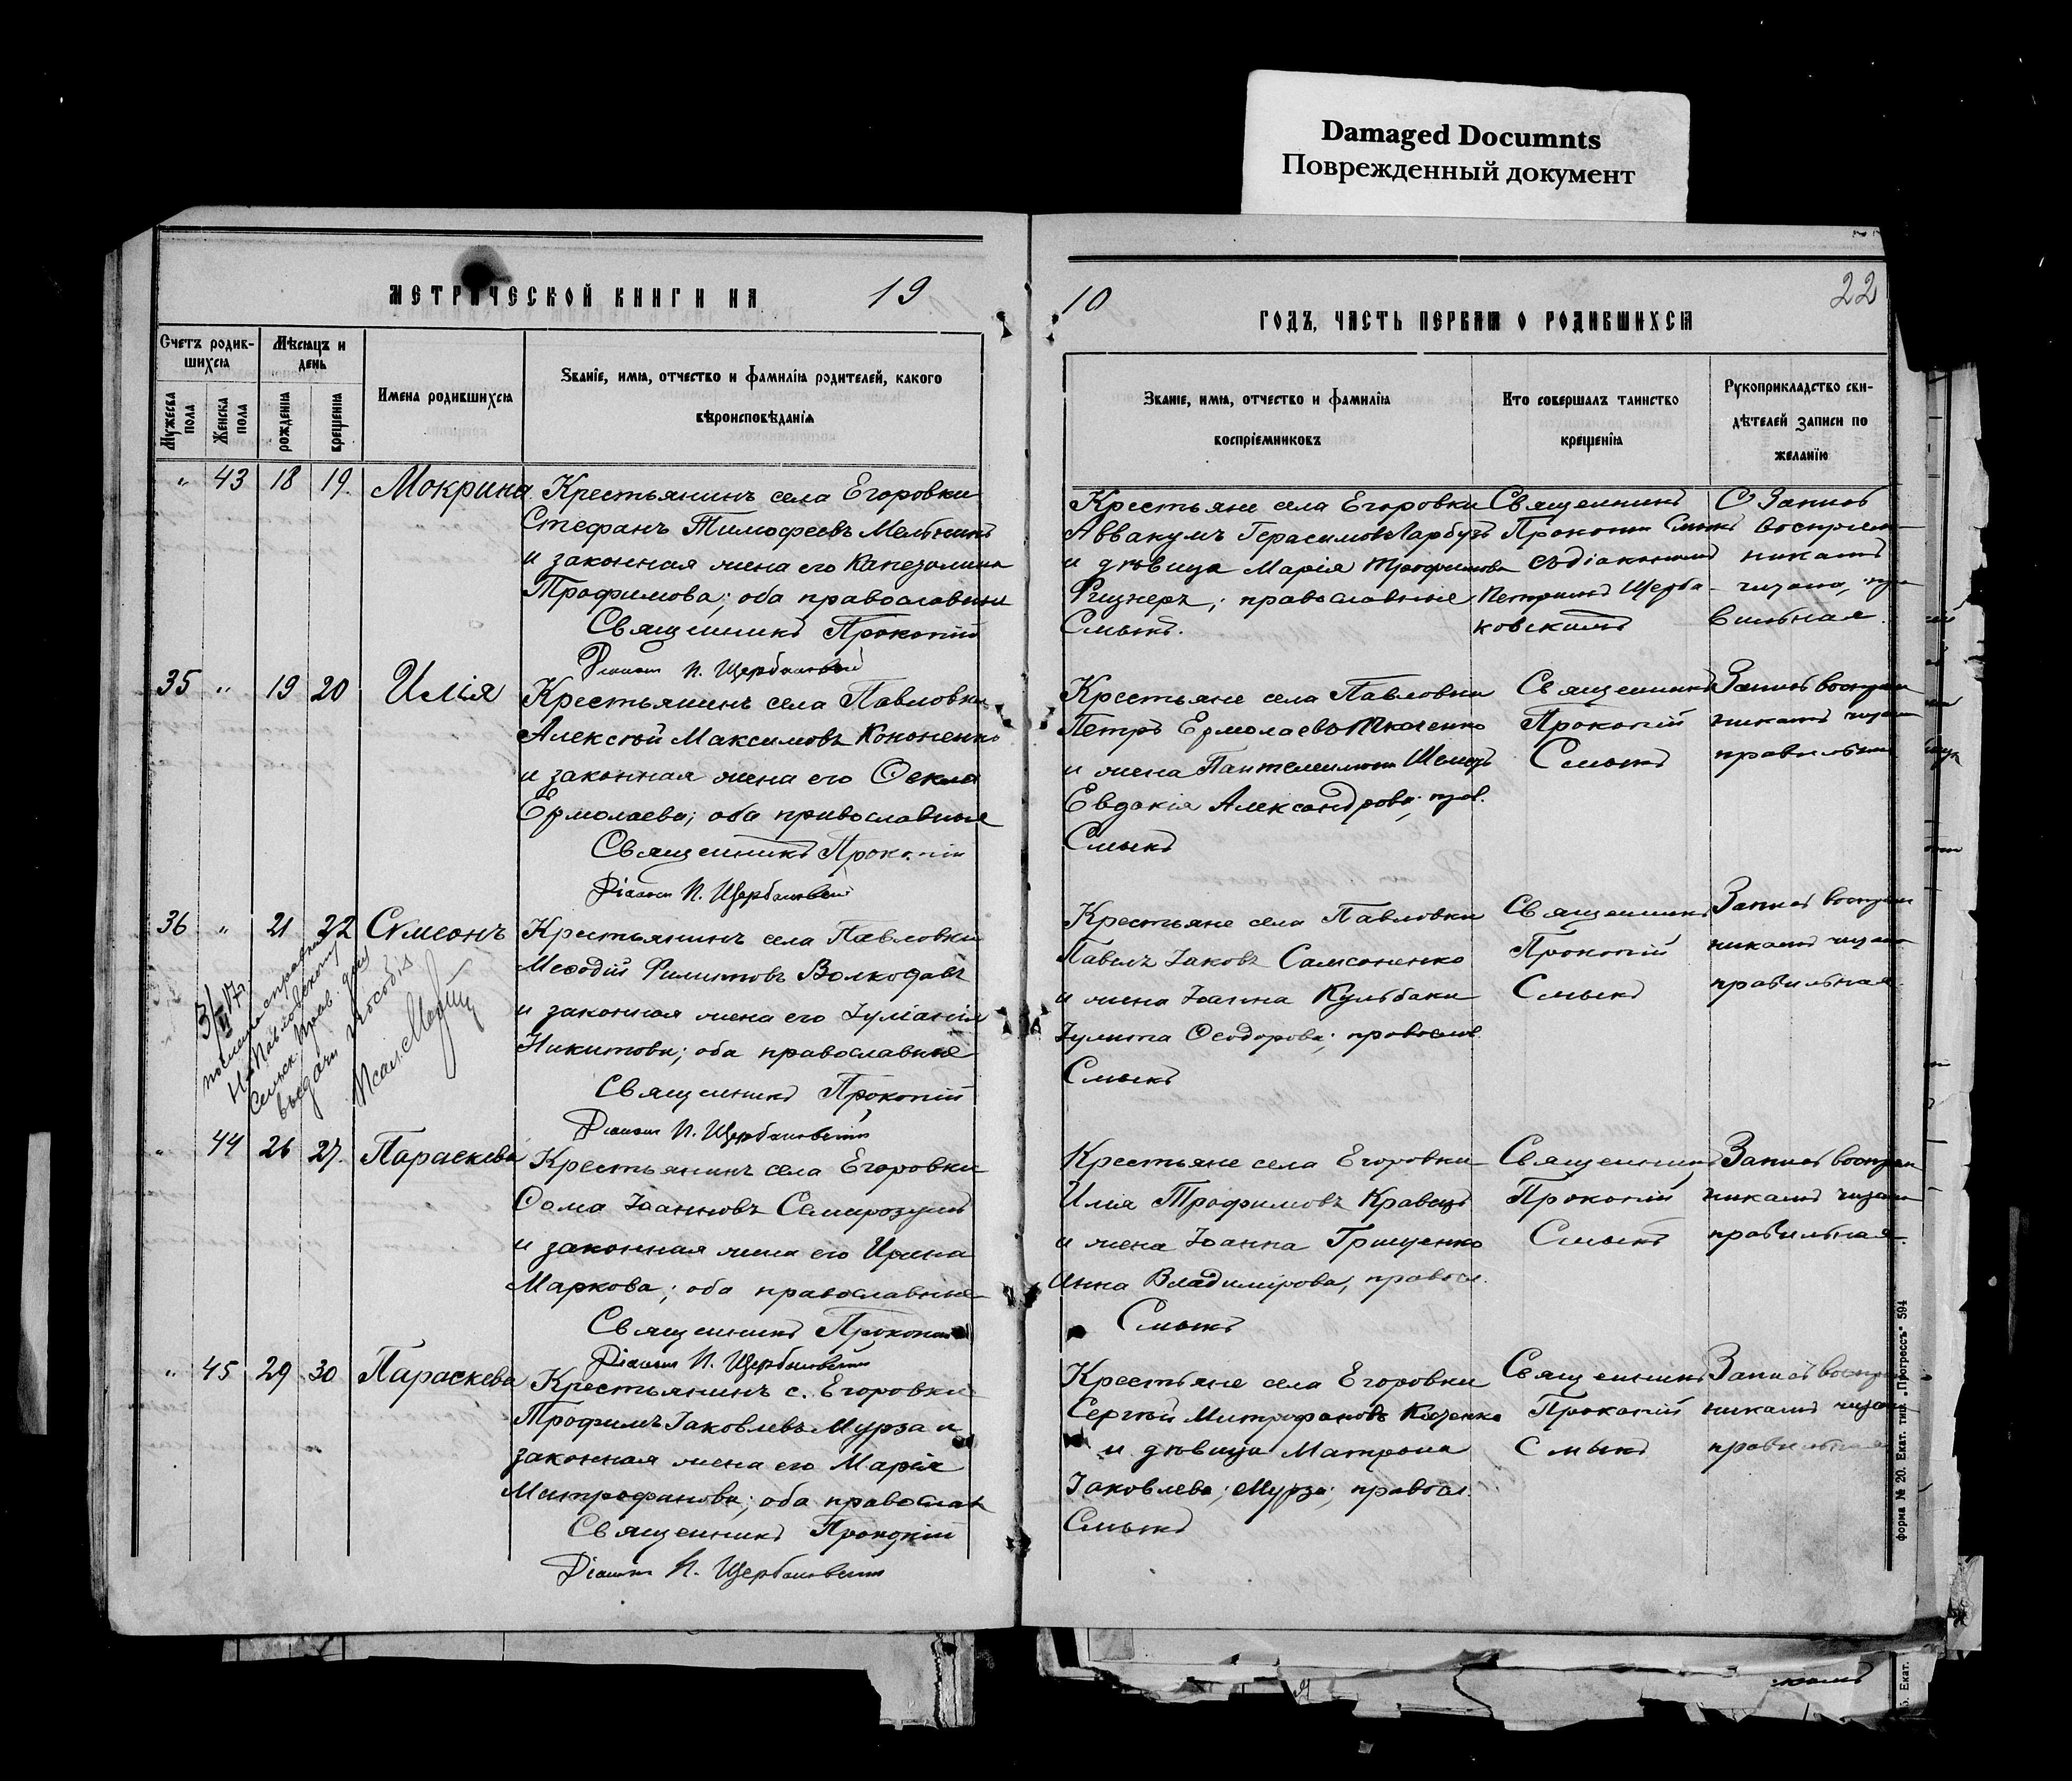 Damaged Documnts
Поврежденный документ
МЕТРИЧЕСКОЙ КНИГИ НА 19
10 ГОДЪ, ЧАСТЬ ПЕРВАЯ О РОДИВШИХСЯ
22
Счетъ родив-
шихся
Мѣсяцъ и
день
Мужеска
пола
Женска
пола
рожденія
крещенія
Имена родившихся
Званіе, имя, отчество и фамилія родителей, какого
вѣроисповѣданія
Званіе, имя, отчество и фамилія
воспріемниковъ
Кто совершалъ таинство
крещенія
Рукоприкладство сви-
дѣтелей записи по
желанію
„ 43 18 19. Мокрина
Крестьянинъ села Егоровки
Стефанъ Тимофеевъ Мельникъ
и законная жена его
Трофимова; оба православные
Священникъ Прокопій
Діаконъ П. Щербаковскій
Крестьяне села Егоровки
Аввакумъ Герасимовъ Гарбузъ
и дѣвица Марія Трофимова
православные
Смыкъ.
Священникъ
Прокопій Смыкъ
съ діакономъ
Петромъ Щерба-
ковскимъ
Запись
воспріем-
никамъ
читана, пра
вильная.
35 „ 19 20 Илія
Крестьянинъ села Павловки
Алексѣй Максимовъ Кононенко
и законная жена его Ѳекла
Ермолаева; оба православные
Священникъ Прокопій
Діаконъ П. Щербаковскій
Крестьяне села Павловки
Петръ Ермолаевъ Ткаченко
и жена Пантелеимона Шемецъ
Евдокія Александрова; прав.
Смыкъ
Священникъ
Прокопій
Смыкъ
Запись воспріем
никамъ читана
правильная
36 „ 21 22 Сѵмеонъ
Крестьянинъ села Павловки
Меѳодій Филиповъ Волкодавъ
и законная жена его Іуліанія
Никитова; оба православные
Священникъ Прокопій
Діаконъ П. Щербаковскій
Крестьяне села Павловки
Павелъ Іаковъ Самсоненко
и жена Іоанна Кульбаки
Іулита Ѳеодорова; правосл.
Смыкъ
Священникъ
Прокопій
Смыкъ
Запись воспріем
никамъ читана
правильная.
Павловскому
Сельск. Прав. для
выдачи пособія
„ 44 26 27. Параскева
Крестьянинъ села Егоровки
Ѳома Іоанновъ Семирозумъ
и законная жена его Ирина
Маркова; оба православные
Священникъ Прокопій
Діаконъ П. Щербаковскій
Крестьяне села Егоровки
Илія Трофимовъ Кравецъ
и жена Іоанна Грищенко
Анна Владимірова, правосл.
Смыкъ
Священникъ
Прокопій
Смыкъ
Запись воспріем
никамъ читана
правильная.
„ 45 29 30 Параскева
Крестьянинъ с. Егоровки
Трофимъ Іаковлевъ Мурза и
законная жена его Марія
Митрофанова; оба православ
Священникъ Прокопій
Діаконъ П. Щербаковскій
Крестьяне села Егоровки
Сергѣй Митрофановъ
и дѣвица Матрона
Іаковлева; Мурза; правосл.
Смыкъ
Священникъ
Прокопій
Смыкъ
Запись воспріем
никамъ читана
правильная
форма № 20. Екат. тип. „Прогрессъ“ 594